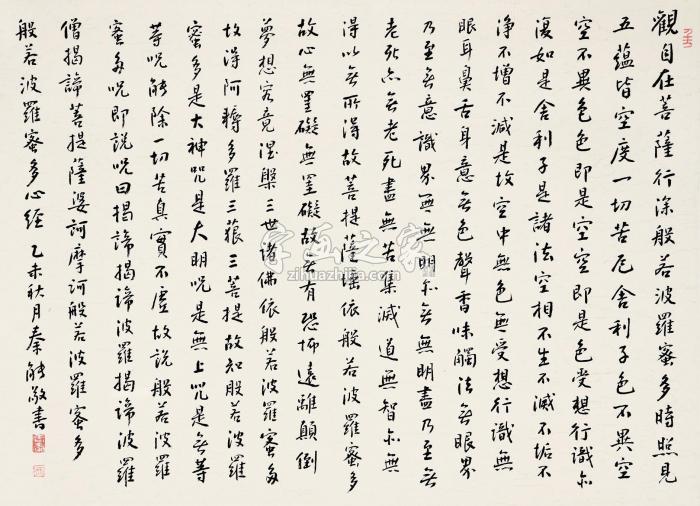 觀自在菩薩行深般若波羅蜜多時照見
五蘊皆空度一切苦厄舍利子色不異空
空不異色色即是空空即是色受想行識亦
復如是舍利子是諸法空相不生不滅不垢不
淨不增不減是故空中無色無受想行識無
眼耳鼻舌身意無色聲香味觸法無眼界
乃至無意識界無無明亦無無明盡乃至無
老死亦無老死盡無苦集滅道無智亦無
得以無所得故菩提薩埵依般若波羅蜜多
故心無罣礙無罣礙故無有恐怖遠離顛倒
夢想究竟涅槃三世諸佛依般若波羅蜜多
故得阿耨多羅三藐三菩提故知般若波羅
蜜多是大神咒是大明咒是無上咒是無等
等咒能除一切苦真實不虛故說般若波羅
蜜多咒即說咒曰揭諦揭諦波羅揭諦波羅
僧揭諦菩提薩婆訶摩訶般若波羅蜜多
般若波羅蜜多心經 乙未秋月秦能敬書
字画之家
zihuazhijia.com